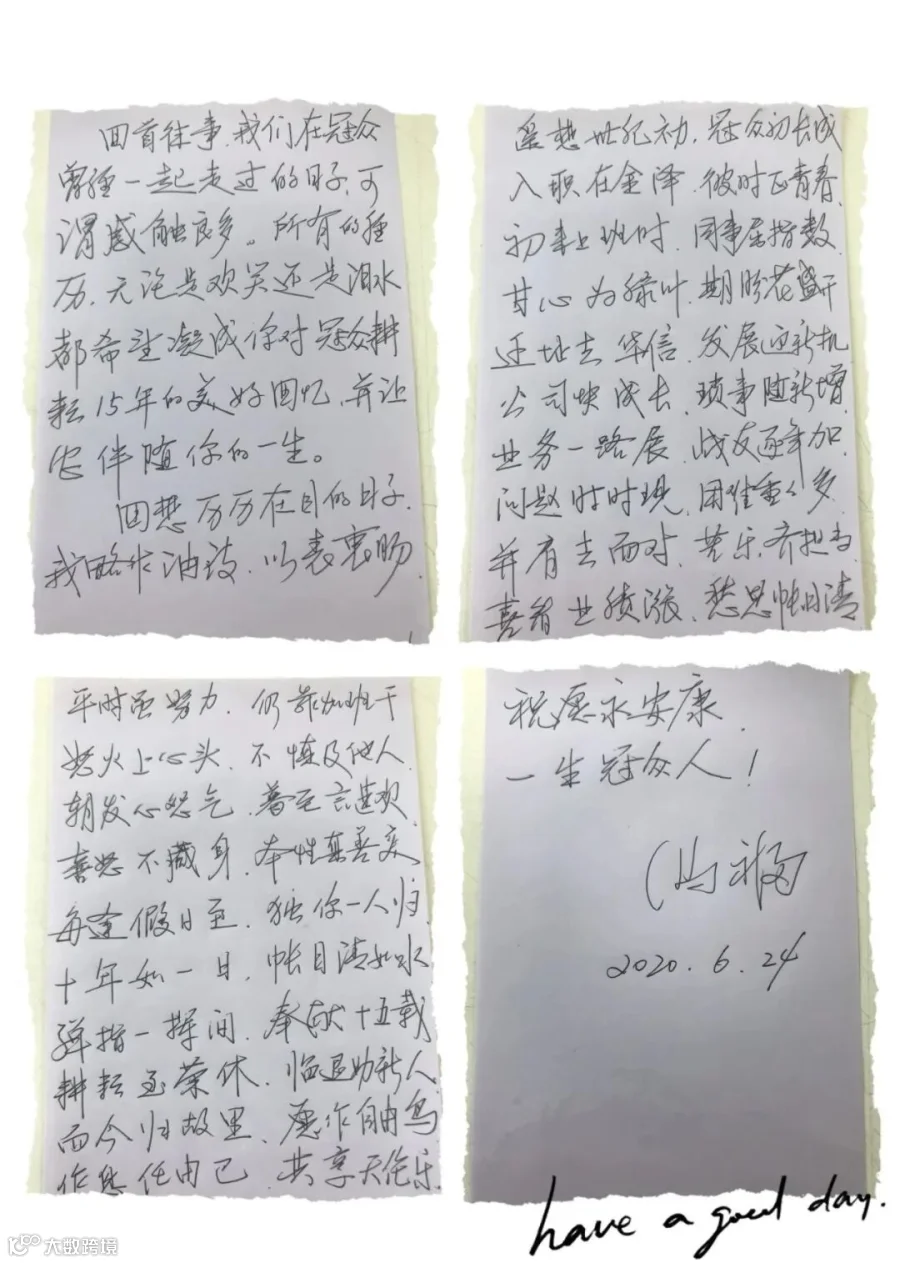 回首往事,我们在冠众
曾经一起走过的日子,可
谓感触良多。所有的经
历,无论是欢笑还是泪水
都希望凝成你对冠众耕
耘15年的美好回忆,并让
它伴随你的一生。
回想历历在目的日子,
我略作油诗,以表衷肠
遥想世纪初,冠众初长成
入职在金泽,彼时正青春
初来上班时,同事屈指数
甘心为绿叶,期盼花盛开
迁址去华信,发展迎新机
公司快成长,琐事随新增
业务一路展,战友逐年加
问题时时现,困难重重多
并肩去面对,苦乐齐担当
喜看业绩涨,愁思帐目清
平时虽努力,仍靠加班干
怒火上心头,不慎及他人
朝发心怒气,暮至言道欢
喜怒不藏身,本性真善美
每逢假日至,独你一人归
十年如一日,帐目清如水
弹指一挥间,奉献十五载
耕耘至荣休,临退助新人
而今归故里,愿作自由鸟
作息任由己,共享天伦乐
祝愿永安康
一生冠众人!
2020.6.24
have a good day.
大数跨境